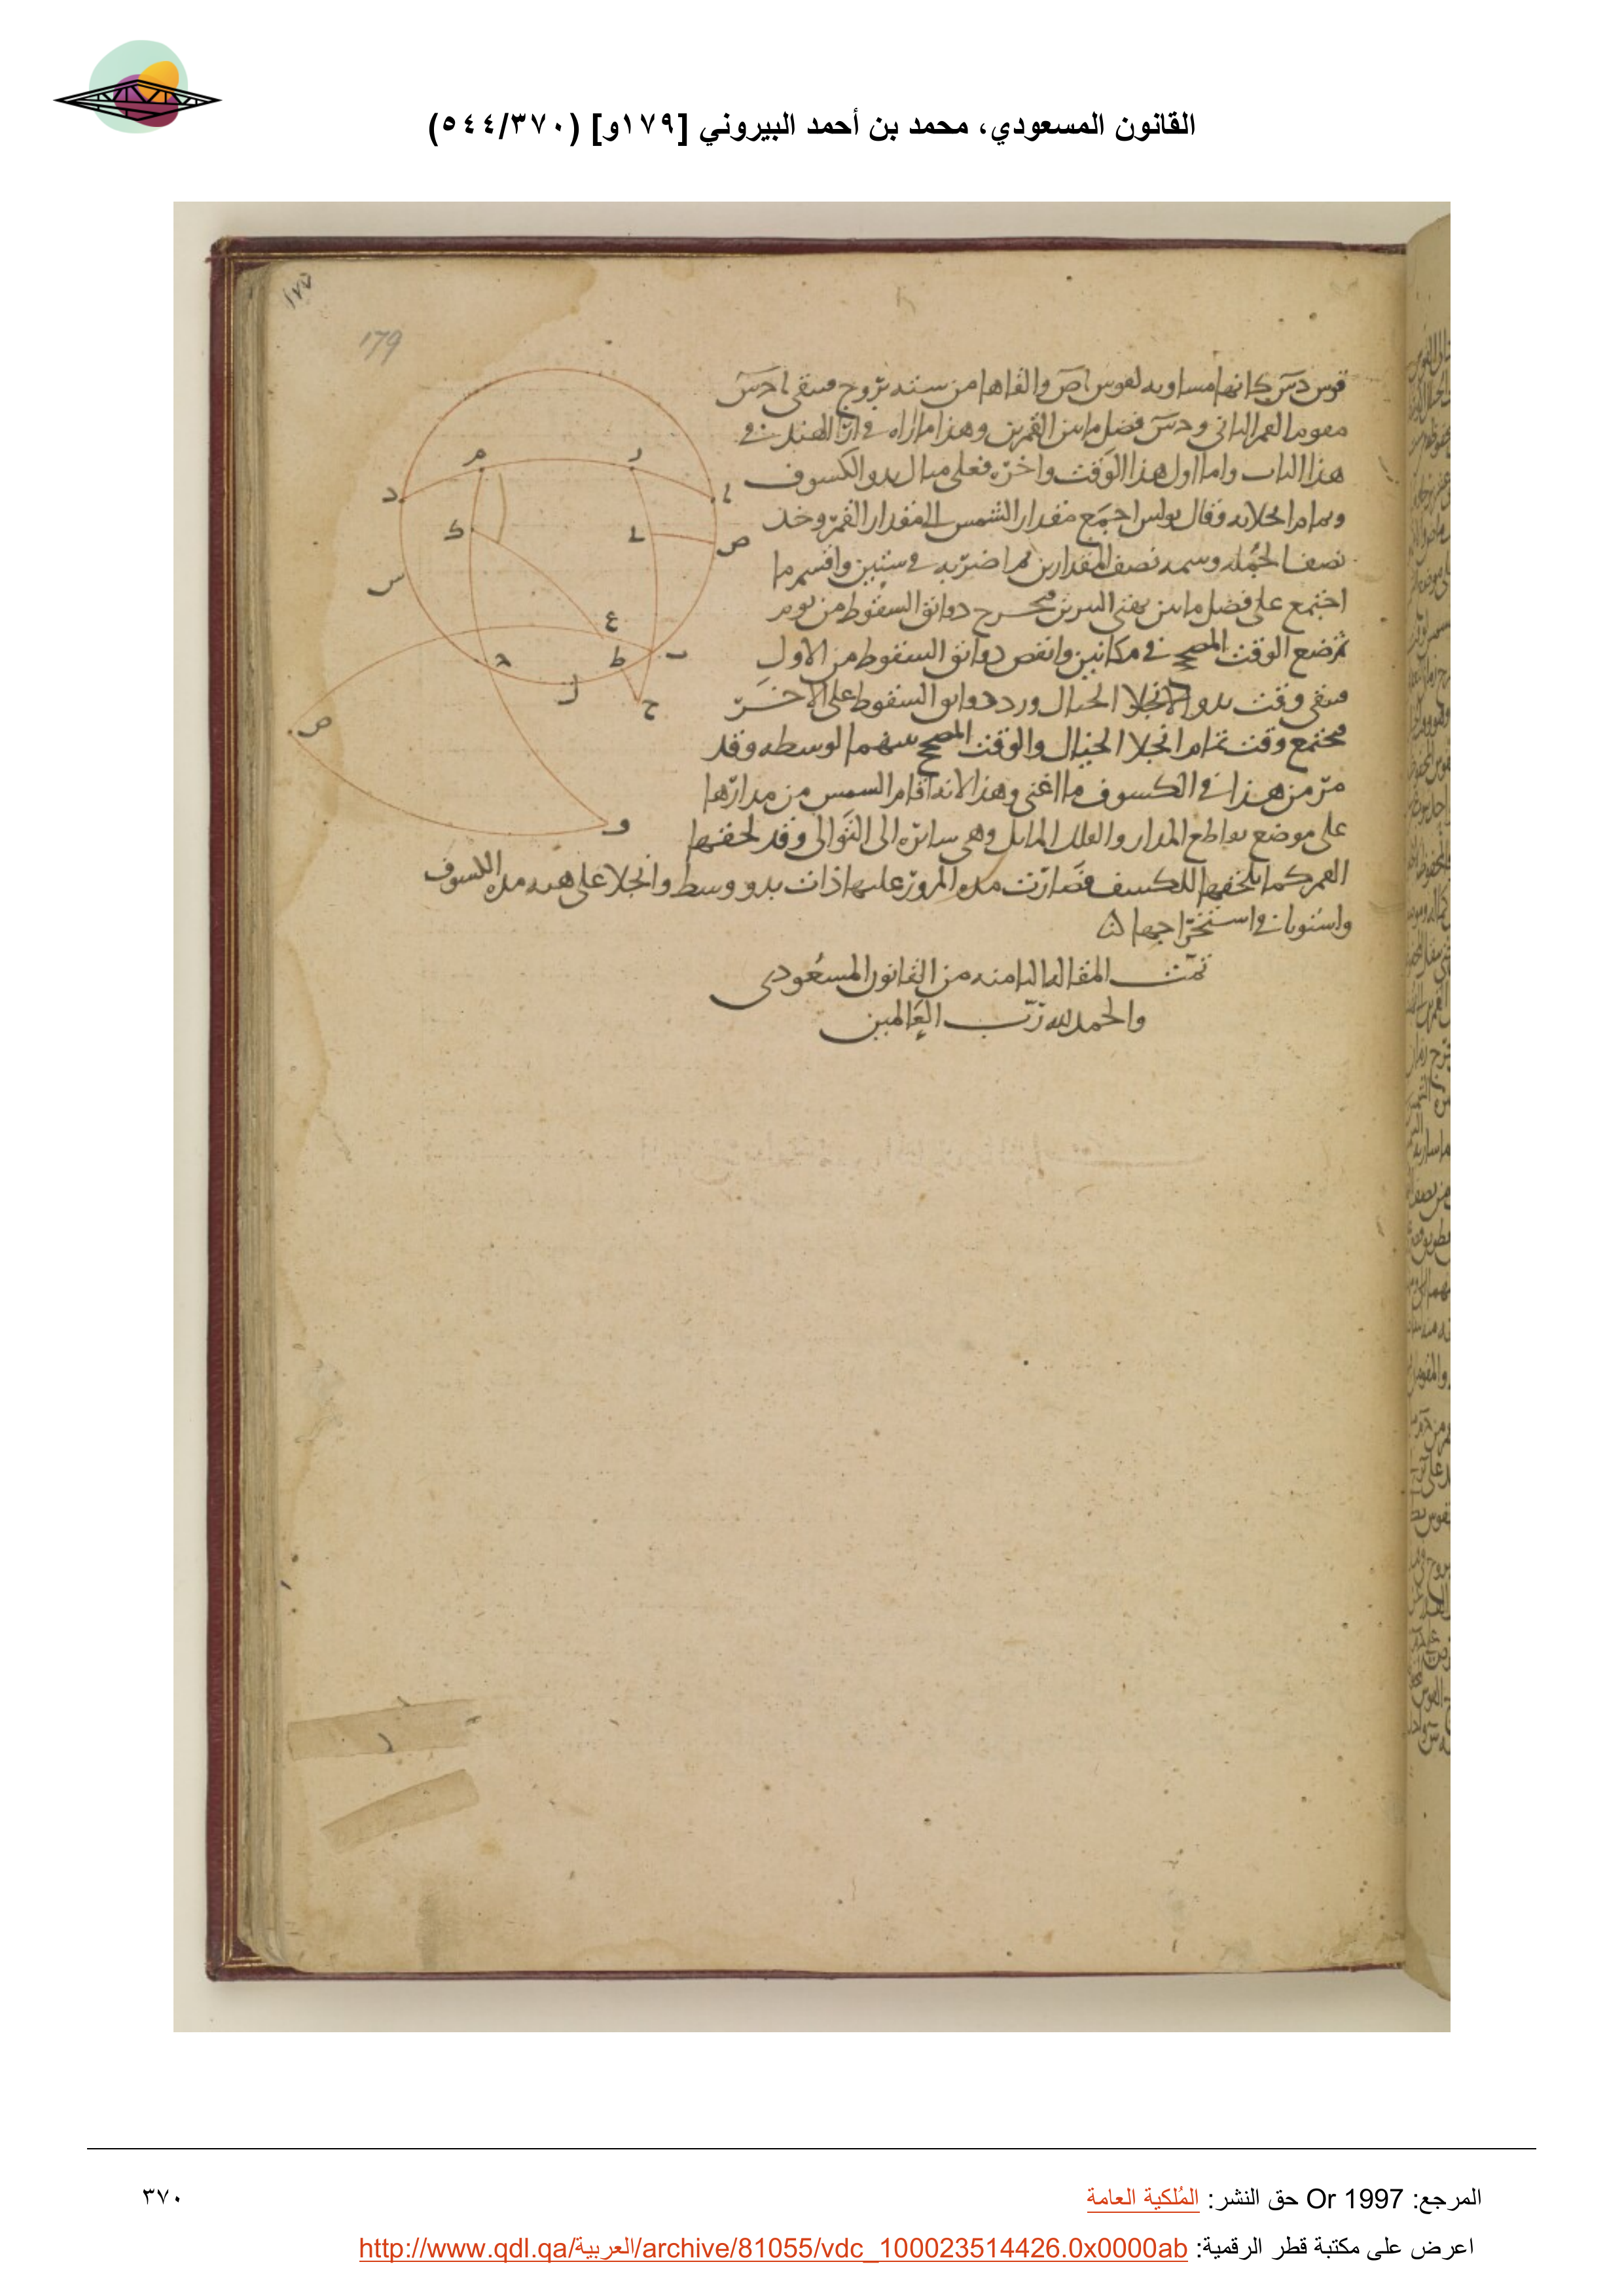 القانون المسعودي، محمد بن أحمد البيروني [١٧٩و] (٥٤٤/٣٧٠)
١٧٧
179
قوس دس كانها مساويه لقوس اص والقاها من ستة بروج فيبقى
مقوما للقمر الثانى ودس فضل ما بين القمرين وهذا ما اراه فى اراء الهند فى
هذا الباب واما اول هذا الوقت واخره فعلى مثال بدو الكسوف
وتمام انجلائه وقال بولس اجمع مقدار الشمس الى مقدار القمر وخذ
نصف الجمله وسمه نصف المقدارين ثم اضربه فى ستين واقسم ما
اجتمع على فضل ما بين بهتى النيرين فيخرج دوانق السقوط من يوم
ثم ضع الوقت المصحح فى مكانين وانقص دوانق السقوط من الاول
فيبقى وقت بدو الانجلا الحيال وزد دوانق السقوط على الاخر
فيجتمع وقت تمام انجلا الحيال والوقت المصحح بينهما لوسطه وقد
مر من هذا فى الكسوف ما اغنى وهذا لانه اقام الشمس من مدارها
على موضع تقاطع المدار والفلك المايل وهى سائره الى التوالى وقد لحقها
القمر كما يلحقها للكسف فصارت مده المرور عليها ذات بدو ووسط وانجلا على هيه مده الكسوف
واستويا فى استخراجها
تمت المقاله الثامنه من القانون المسعودى
والحمد لله رب العالمين
ا
ر
م
د
ص
ك
س
ع
ب
ط
ج
ل
ح
ص
و
المرجع: Or 1997 حق النشر: المُلكية العامة
٣٧٠
اعرض على مكتبة قطر الرقمية: http://www.qdl.qa/العربية/archive/81055/vdc_100023514426.0x0000ab